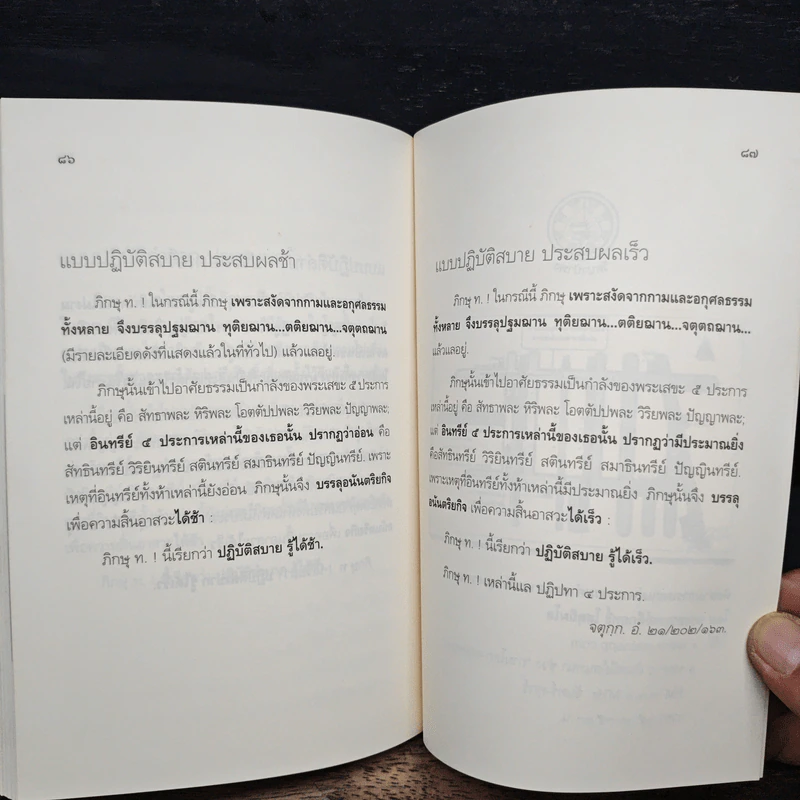 ๘๖
แบบปฏิบัติสบาย ประสบผลช้า
ภิกษุ ท. ! ในกรณีนี้ ภิกษุ เพราะสงัดจากกามและอกุศลธรรม
ทั้งหลาย จึงบรรลุปฐมฌาน ทุติยฌาน...ตติยฌาน...จตุตถฌาน
(มีรายละเอียดดังที่แสดงแล้วในที่ทั่วไป) แล้วแลอยู่.
ภิกษุนั้นเข้าไปอาศัยธรรมเป็นกำลังของพระเสขะ ๕ ประการ
เหล่านี้อยู่ คือ สัทธาพละ หิริพละ โอตตัปปพละ วิริยพละ ปัญญาพละ;
แต่ อินทรีย์ ๕ ประการเหล่านี้ของเธอนั้น ปรากฏว่าอ่อน คือ
สัทธินทรีย์ วิริยินทรีย์ สตินทรีย์ สมาธินทรีย์ ปัญญินทรีย์. เพราะ
เหตุที่อินทรีย์ทั้งห้าเหล่านี้ยังอ่อน ภิกษุนั้นจึง บรรลุอนันตริยกิจ
เพื่อความสิ้นอาสวะได้ช้า :
ภิกษุ ท. ! นี้เรียกว่า ปฏิบัติสบาย รู้ได้ช้า.
๘๗
แบบปฏิบัติสบาย ประสบผลเร็ว
ภิกษุ ท. ! ในกรณีนี้ ภิกษุ เพราะสงัดจากกามและอกุศลธรรม
ทั้งหลาย จึงบรรลุปฐมฌาน ทุติยฌาน...ตติยฌาน...จตุตถฌาน...
แล้วแลอยู่.
ภิกษุนั้นเข้าไปอาศัยธรรมเป็นกำลังของพระเสขะ ๕ ประการ
เหล่านี้อยู่ คือ สัทธาพละ หิริพละ โอตตัปปพละ วิริยพละ ปัญญาพละ;
แต่ อินทรีย์ ๕ ประการเหล่านี้ของเธอนั้น ปรากฏว่ามีประมาณยิ่ง
คือสัทธินทรีย์ วิริยินทรีย์ สตินทรีย์ สมาธินทรีย์ ปัญญินทรีย์.
เพราะเหตุที่อินทรีย์ทั้งห้าเหล่านี้มีประมาณยิ่ง ภิกษุนั้นจึง บรรลุ
อนันตริยกิจ เพื่อความสิ้นอาสวะได้เร็ว :
ภิกษุ ท. ! นี้เรียกว่า ปฏิบัติสบาย รู้ได้เร็ว.
ภิกษุ ท. ! เหล่านี้แล ปฏิปทา ๔ ประการ.
จตุกฺก. อํ. ๒๑/๒๐๒/๑๖๓.